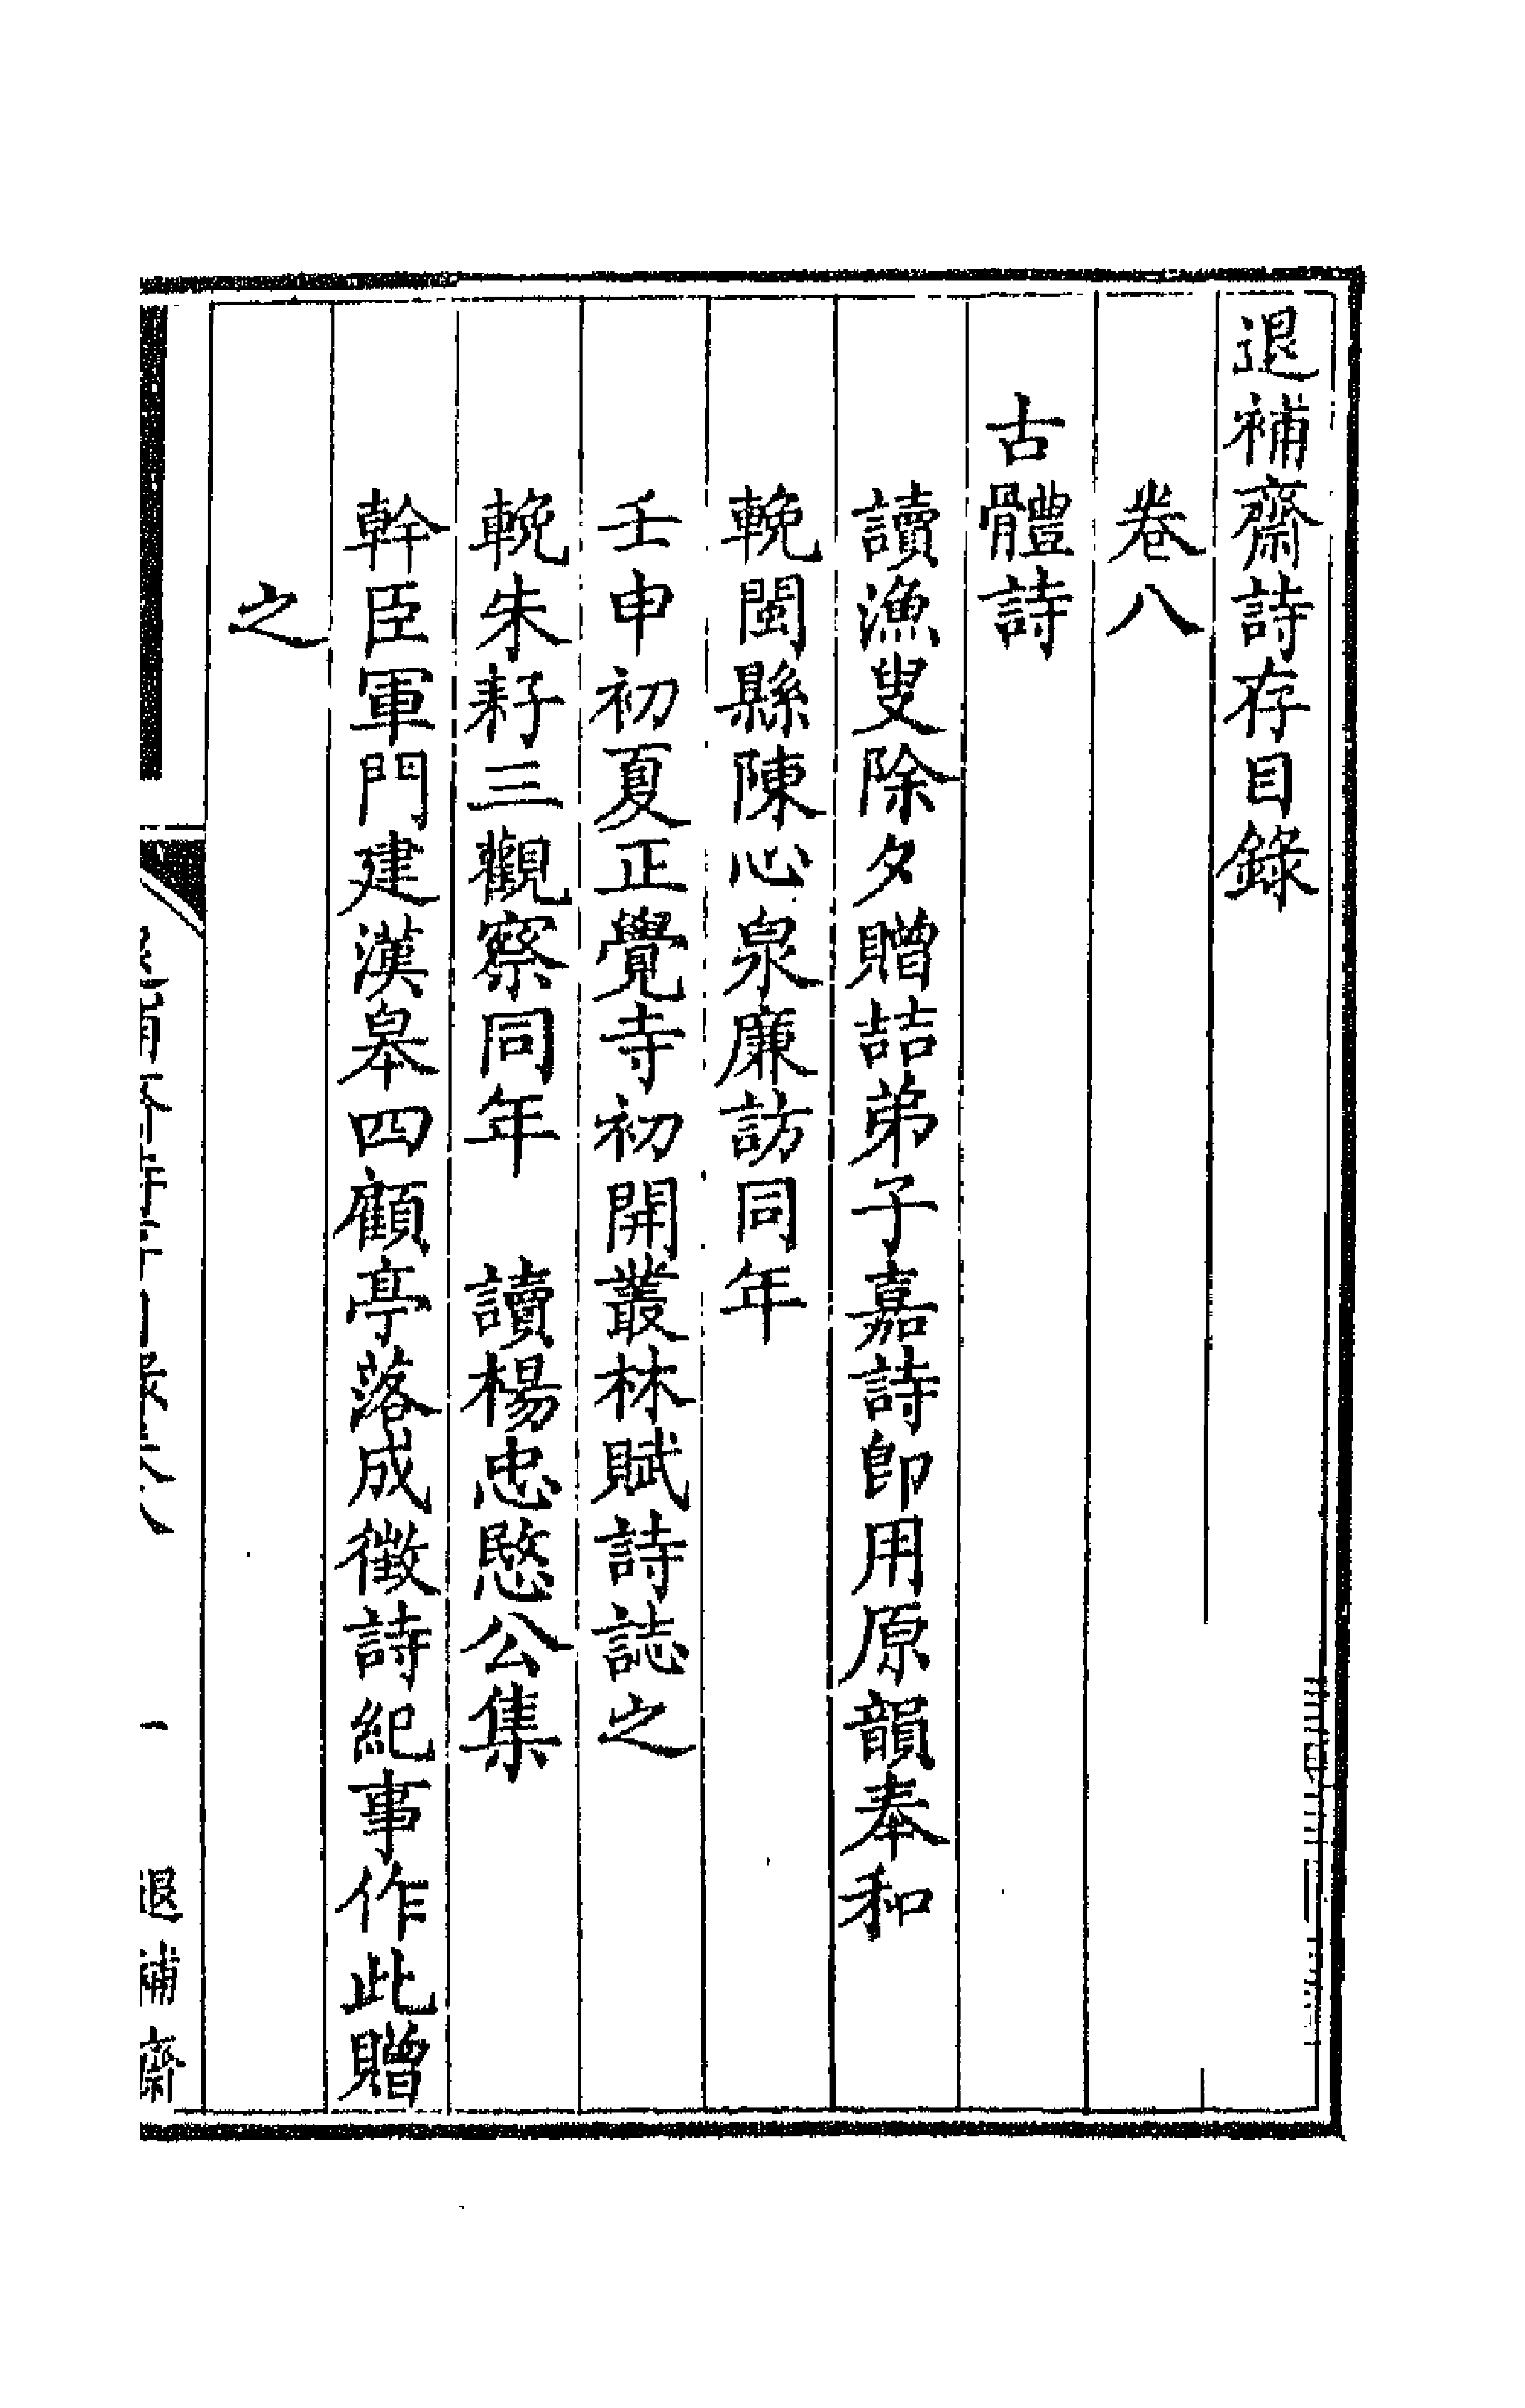 退補齋詩存目錄
卷八
古體詩
讀漁叟除夕贈喆弟子嘉詩卽用原韻奉和
輓閩縣陳心泉廉訪同年
壬申初夏正覺寺初開叢林賦詩誌之
輓朱耔三觀察同年　讀楊忠愍公集
幹臣軍門建漢皋四顧亭落成徵詩紀事作此贈
之
一
退補齋